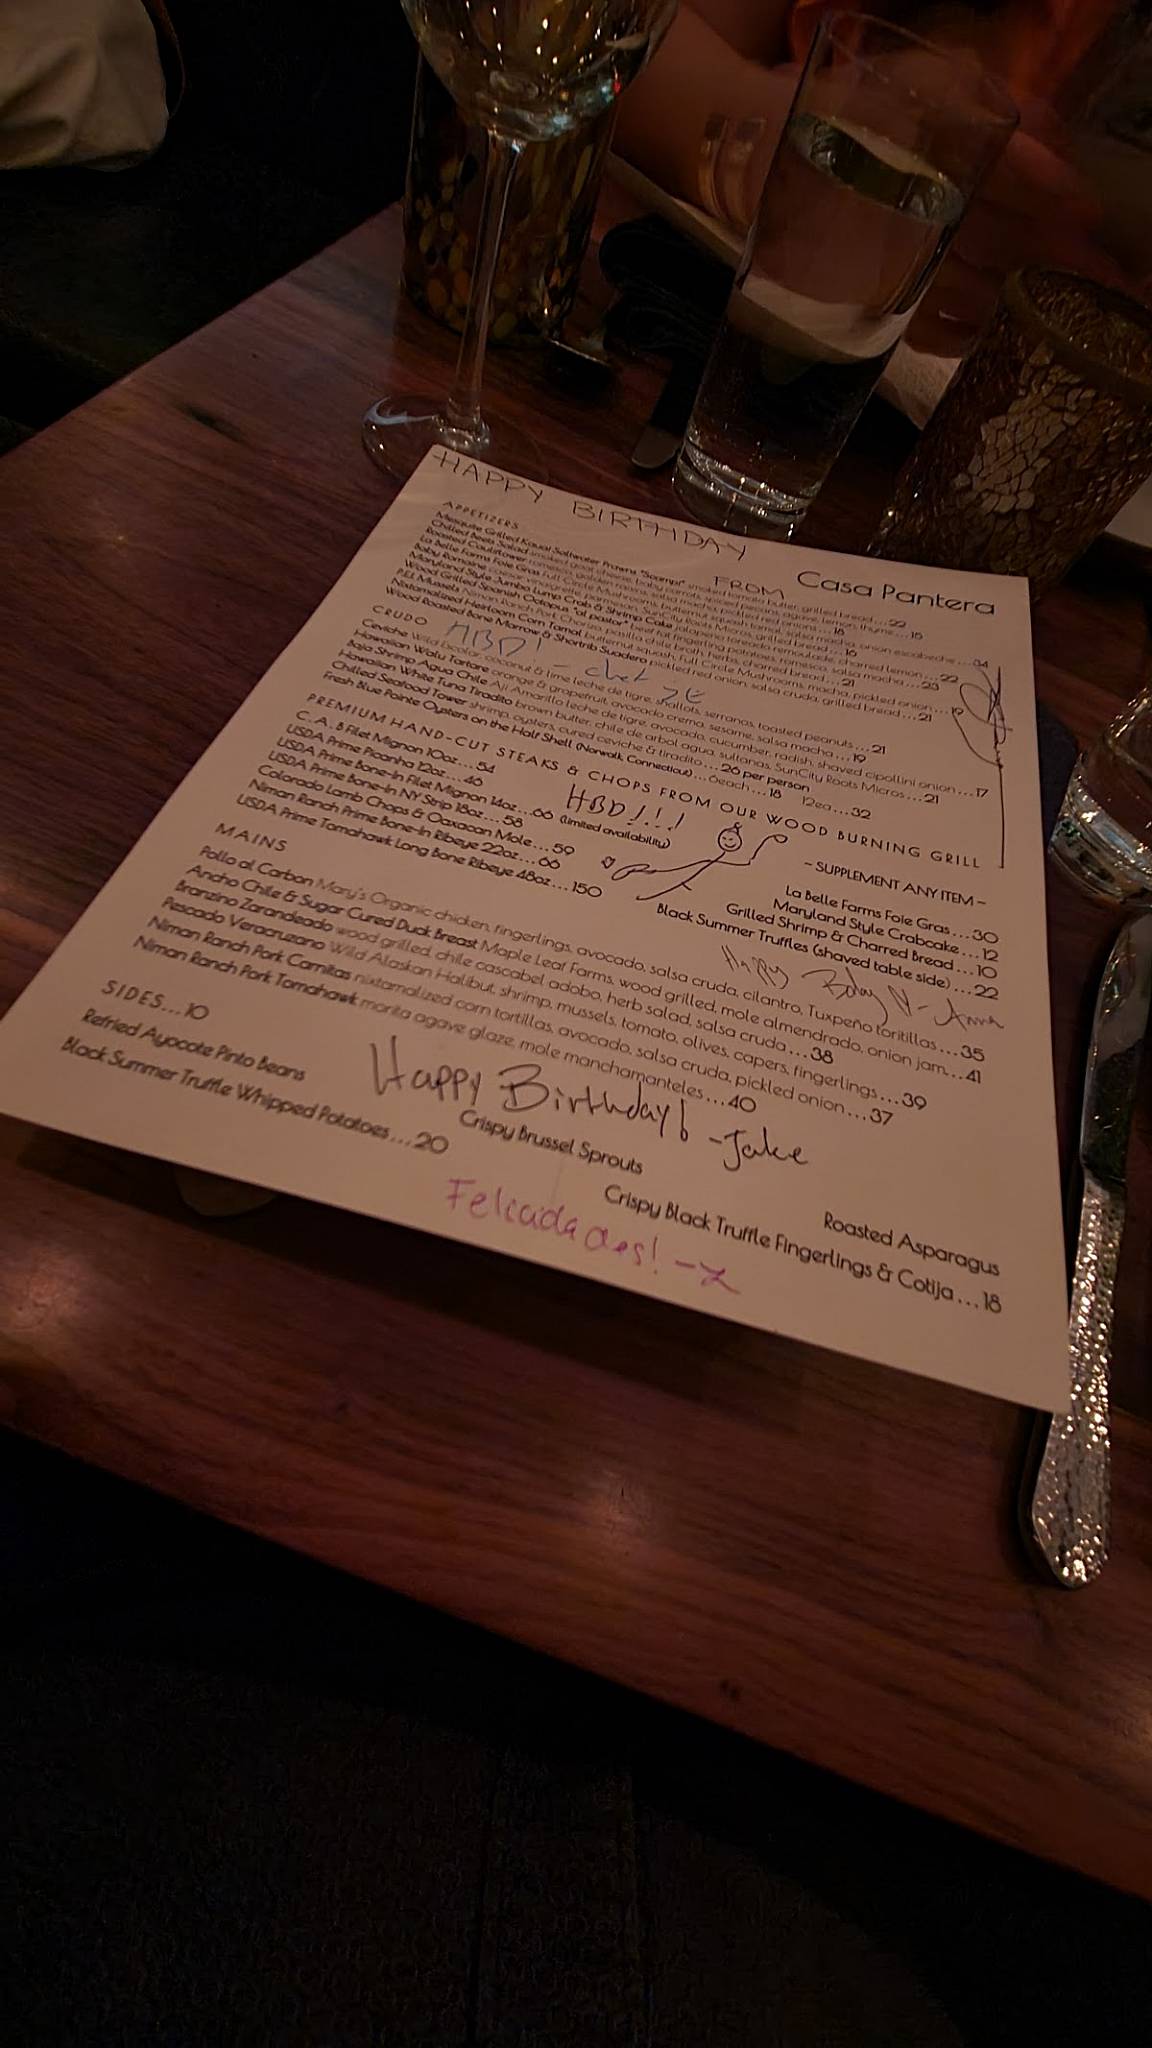 HAPPY BIRTHDAY
FROM Casa Pantera
APPETIZERS
Mesquite Grilled Kauai Saltwater Prawns "Scampi" smoked tomato butter, grilled bread...22
Chilled Beets Salad smoked goat cheese, baby carrots, spiced pecans, agave, lemon, thyme...15
Roasted Cauliflower romesco, golden raisins, salsa macha, pickled red onions...18
La Belle Farms Foie Gras Full Circle Mushrooms, butternut squash tamal, salsa macha, onion escabeche...34
Baby Romaine caesar vinaigrette, parmesan, SunCity Roots Micros, grilled bread...16
Maryland Style Jumbo Lump Crab & Shrimp Cake jalapeño remoulade, charred lemon...22
Wood Grilled Spanish Octopus "al pastor" beef fat fingerling potatoes, romesco, salsa macha...23
P.E.I. Mussels Niman Ranch Pork Chorizo, pasilla chile broth, herbs, charred bread...21
Nixtamalized Heirloom Corn Tamal butternut squash, Full Circle Mushrooms, macha, pickled onion...19
Wood Roasted Bone Marrow & Shortrib Suadero pickled red onion, salsa cruda, grilled bread...21
CRUDO
HBD! - chef
Ceviche Wild bicolar, coconut & lime leche de tigre, shallots, serranos, toasted peanuts...21
Hawaiian Walu Tartare orange & grapefruit, avocado crema, sesame, salsa macha...19
Baja Shrimp Agua Chile Aji Amarillo leche de tigre, avocado, cucumber, radish, shaved cipollini onion...17
Hawaiian White Tuna Tiradito brown butter, chile de arbol agua, sultanas, SunCity Roots Micros...21
Chilled Seafood Tower shrimp, oysters, cured ceviche & tiradito...26 per person
Fresh Blue Pointe Oysters on the Half Shell (Norwalk, Connecticut)...6each...18 12ea...32
PREMIUM HAND-CUT STEAKS & CHOPS FROM OUR WOOD BURNING GRILL
C.A.B Filet Mignon 10oz...54
USDA Prime Picanha 12oz...46
USDA Prime Bone-In Filet Mignon 14oz...66 (limited availability)
USDA Prime Bone-In NY Strip 18oz...58
Colorado Lamb Chops & Oaxacan Mole...59
Niman Ranch Prime Bone-In Ribeye 22oz...66
USDA Prime Tomahawk Long Bone Ribeye 48oz...150
HBD!!!
~ SUPPLEMENT ANY ITEM ~
La Belle Farms Foie Gras...30
Maryland Style Crabcake...12
Grilled Shrimp & Charred Bread...10
Black Summer Truffles (shaved table side)...22
Happy Bday - Anna
MAINS
Pollo al Carbon Mary's Organic chicken, fingerlings, avocado, salsa cruda, cilantro, Tuxpeño toritillas...35
Ancho Chile & Sugar Cured Duck Breast Maple Leaf Farms, wood grilled, mole almendrado, onion jam...41
Branzino Zarandeado wood grilled, chile cascabel adobo, herb salad, salsa cruda...38
Pescado Veracruzano Wild Alaskan Halibut, shrimp, mussels, tomato, olives, capers, fingerlings...39
Niman Ranch Pork Carnitas nixtamalized corn tortillas, avocado, salsa cruda, pickled onion...37
Niman Ranch Pork Tomahawk morita agave glaze, mole manchamanteles...40
Happy Birthday! -Jake
SIDES...10
Refried Ayocote Pinto Beans Crispy Brussel Sprouts Roasted Asparagus
Black Summer Truffle Whipped Potatoes...20 Crispy Black Truffle Fingerlings & Cotija...18
Felicidades! -Z